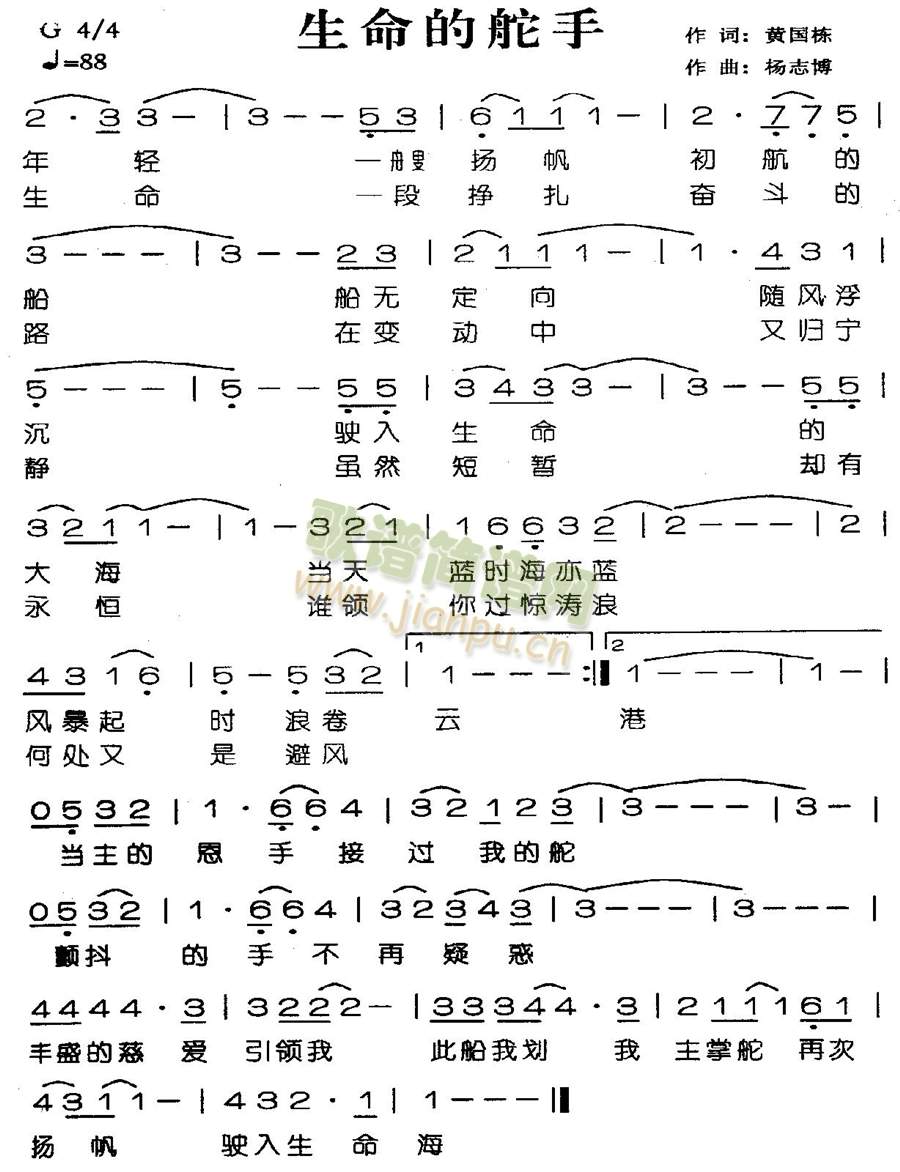 G 4/4
生命的舵手
作 词：黄国栋
♩=88
作 曲：杨志博
2 · 3 3 — | 3 — — 5 3 | 6 1 1 1 — | 2 · 7 7 5 |
年 轻 一艘 扬 帆 初 航 的
生 命 一段 挣 扎 奋 斗 的
3 — — — | 3 — — 2 3 | 2 1 1 1 — | 1 · 4 3 1 |
船 船无 定 向 随风浮
路 在变 动 中 又归宁
5 — — — | 5 — — 5 5 | 3 4 3 3 — | 3 — — 5 5 |
沉 驶入 生 命 的
静 虽然 短 暂 却有
3 2 1 1 — | 1 — 3 2 1 | 1 6 6 3 2 | 2 — — — | 2 |
大 海 当天 蓝时海亦蓝
永 恒 谁领 你过惊涛浪
歌谱简谱网
www.jianpu.cn
4 3 1 6 | 5 — 5 3 2 | 1 1 — — — :| 2 1 — — — | 1 — |
风暴起 时 浪卷 云 港
何处又 是 避风
0 5 3 2 | 1 · 6 6 4 | 3 2 1 2 3 | 3 — — — | 3 — |
当主的 恩 手 接 过 我的舵
0 5 3 2 | 1 · 6 6 4 | 3 2 3 4 3 | 3 — — — | 3 — — — |
颤抖 的 手 不 再 疑 惑
4 4 4 4 4 · 3 | 3 2 2 2 2 — | 3 3 3 3 4 4 · 3 | 2 1 1 1 6 1 |
丰盛的慈 爱 引领我 此船我划 我 主掌舵 再次
4 3 1 1 — | 4 3 2 · 1 | 1 — — — ‖
扬 帆 驶入生 命 海